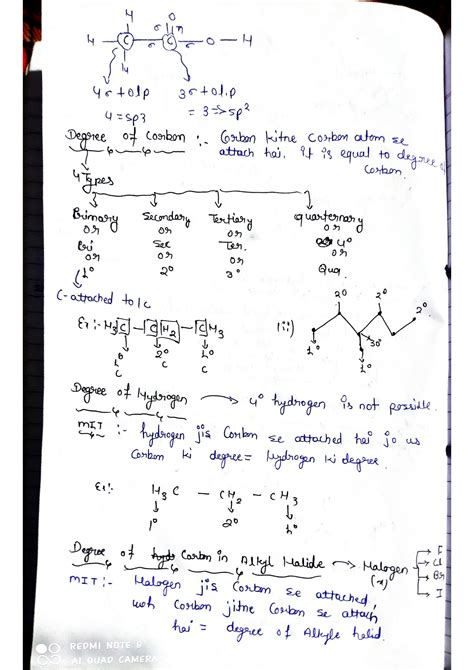 H O
H C σ C σ O H
σ π
H
4σ + 0l.p 3σ + 0l.p
4 = sp3 = 3 → sp²
Degree of Carbon :- Carbon kitne Carbon atom se
attach hai. it is equal to degree of
Carbon.
4 Types
Primary Secondary Tertiary quarternary
or or or or
Pri Sec Ter. 4°
or or or or
1° 2° 3° Qua.
C-attached to 1c
Ex:- H3C - CH2 - CH3
1° 2° 1°
C C C
iii) 2° 2° 2°
1° 3°
1°
Degree of Hydrogen → 4° hydrogen is not possible.
MIT :- hydrogen jis Carbon se attached hai jo us
Carbon ki degree = Hydrogen ki degree
Ex:- H3C - CH2 - CH3
1° 2° 1°
Degree of Carbon in Alkyl Halide → Halogen
(x)
F
Cl
Br
I
MIT :- Halogen jis Carbon se attached,
woh Carbon jitne Carbon se attach
hai = degree of Alkyle halid.
REDMI NOTE 8
AI QUAD CAMERA